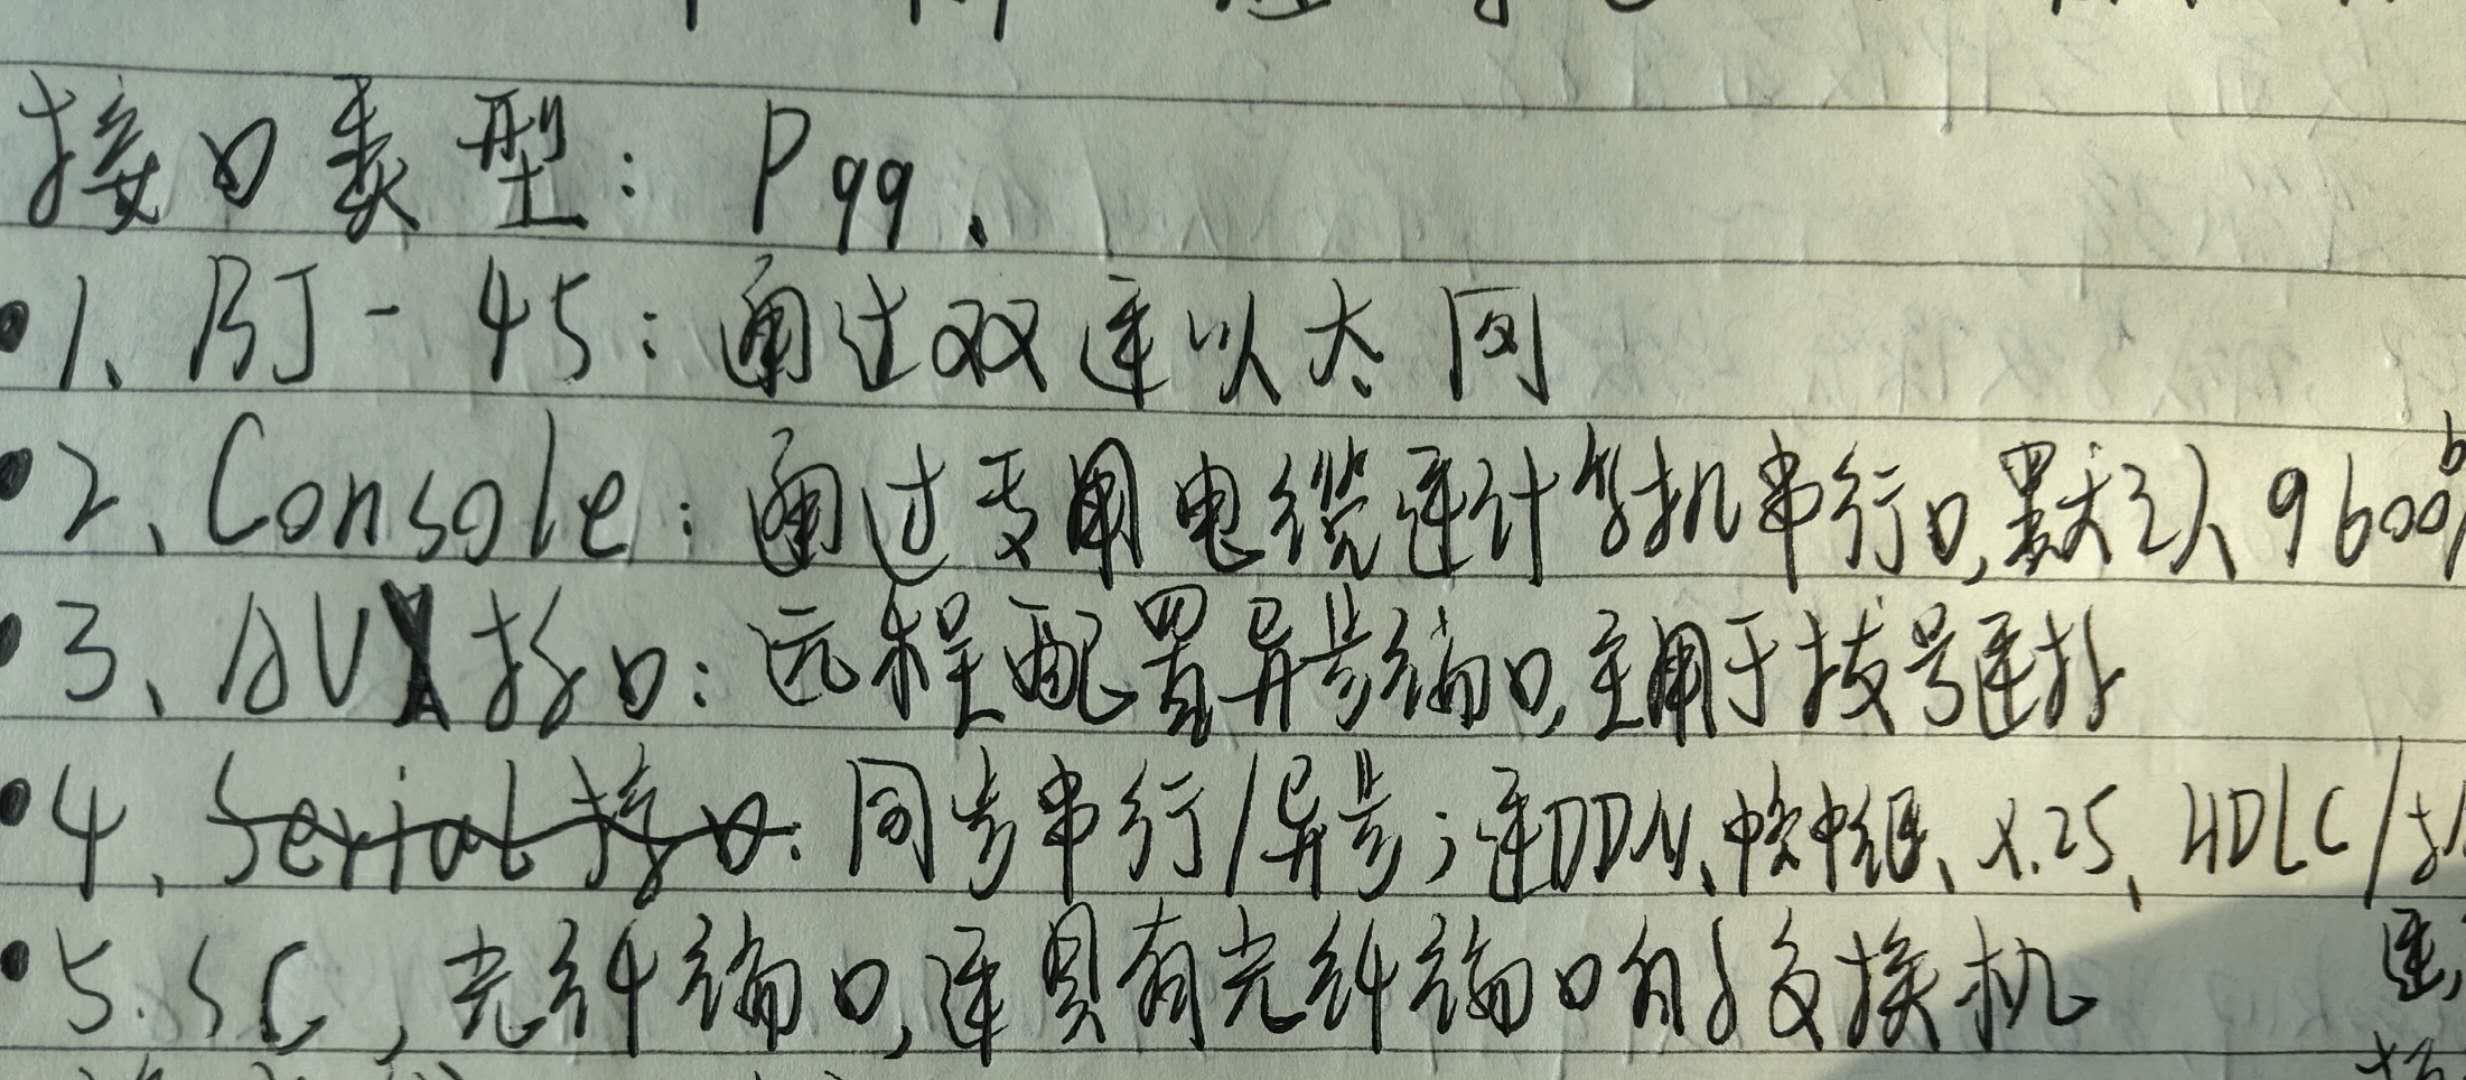 接口类型：P99.
•1、RJ-45：通过双连以太网
•2、Console：通过专用电缆连计算机串行口,默认9600b/
•3、AUX接口：远程配置异步端口,主用于拨号连接
•4、Serial接口：同步串行/异步；连DDN、帧中继、X.25、HDLC/
•5.SC,光纤端口,连具有光纤端口的交换机
连